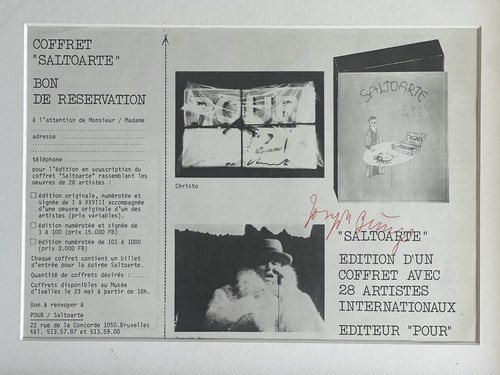 COFFRET
"SALTOARTE"
BON
DE RESERVATION
à l'attention de Monsieur / Madame
adresse
téléphone
pour l'édition en souscription du
coffret "Saltoarte" rassemblant les
oeuvres de 28 artistes :
édition originale, numérotée et
signée de I à XXVIII accompagnée
d'une oeuvre originale d'un des
artistes (prix variables).
édition numérotée et signée de
1 à 100 (prix 15.000 FB)
édition numérotée de 101 à 1000
(prix 3.000 FB)
Chaque coffret contient un billet
d'entrée pour la soirée Saltoarte.
Quantité de coffrets désirés :
Coffrets disponibles au Musée
d'Ixelles le 23 mai à partir de 18h.
Bon à renvoyer à
POUR / Saltoarte
22 rue de la Concorde 1050.Bruxelles
tél. 513.57.87 et 513.59.00
POUR
Christo
SALTOARTE
Joseph Beuys
"SALTOARTE"
EDITION D'UN
COFFRET AVEC
28 ARTISTES
INTERNATIONAUX
EDITEUR "POUR"